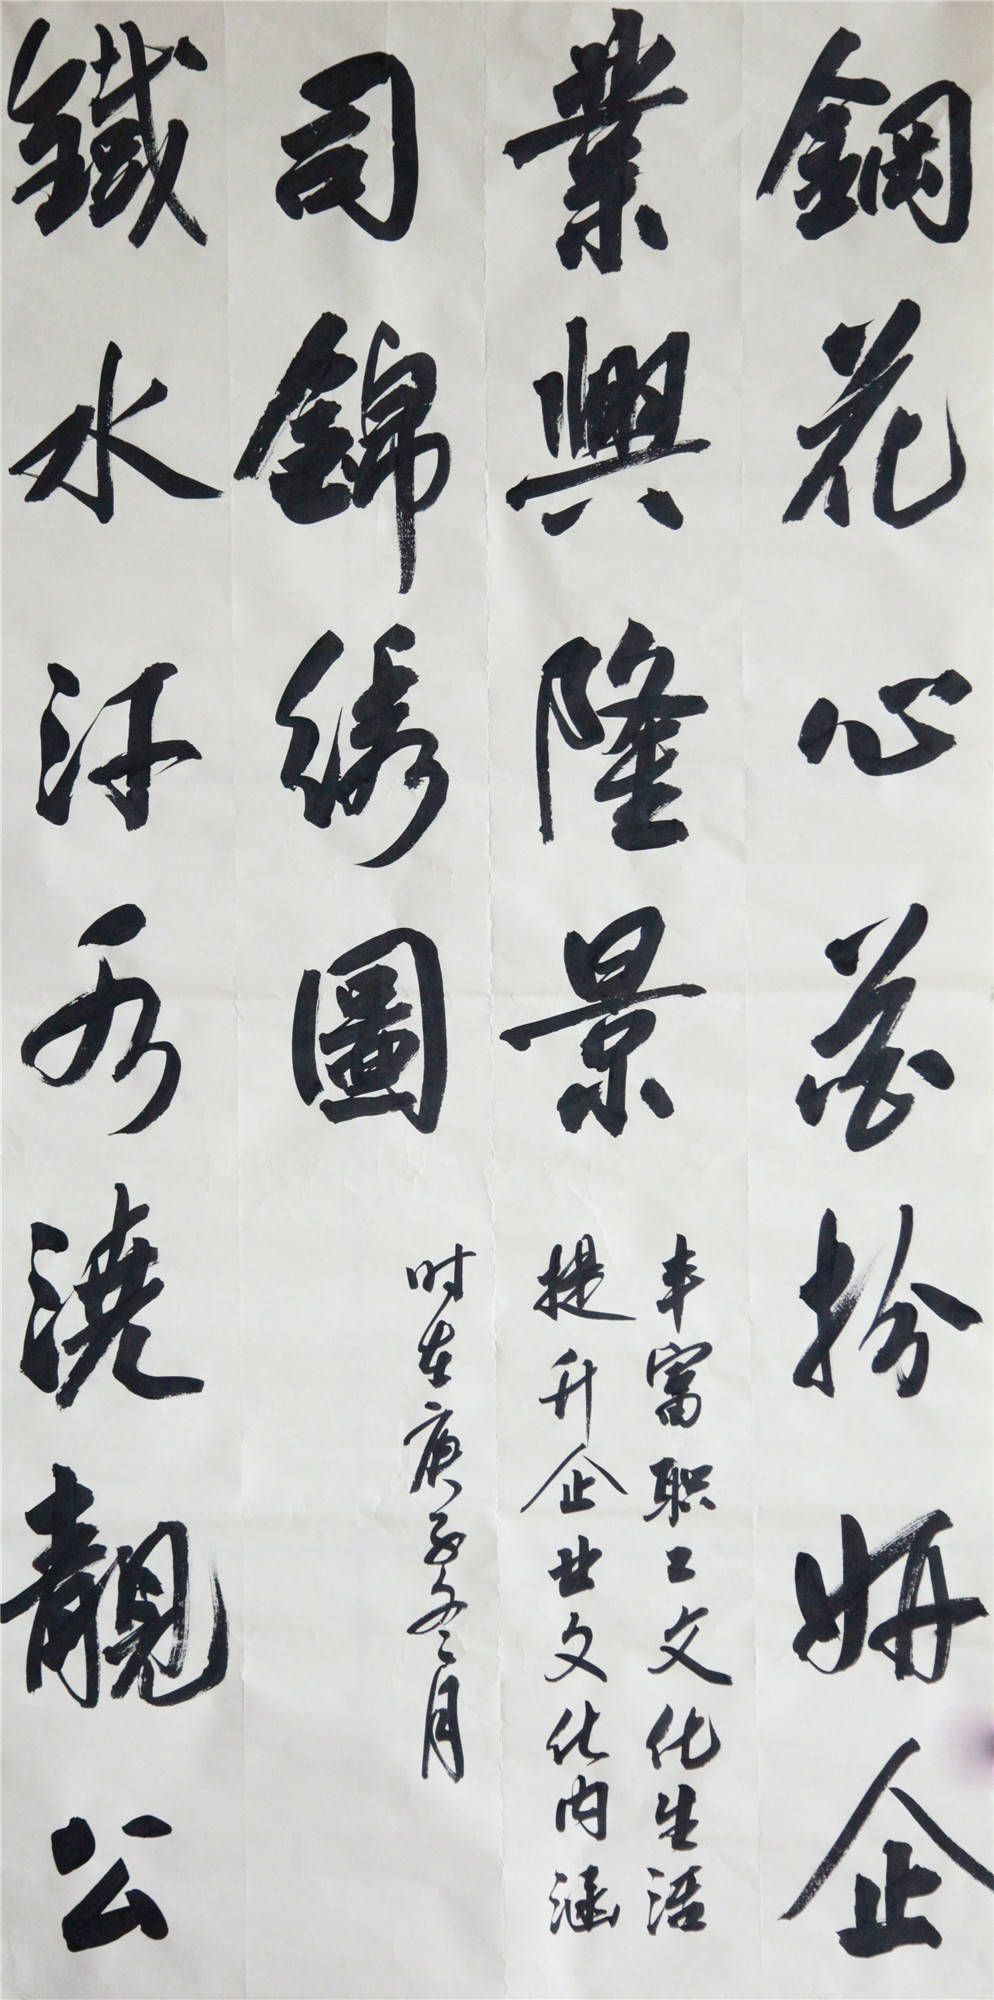 鋼花心花扮妍企
業興隆景
丰富职工文化生活
提升企业文化内涵
鐵水汗水澆靚公
司錦绣圖
时在庚子冬月